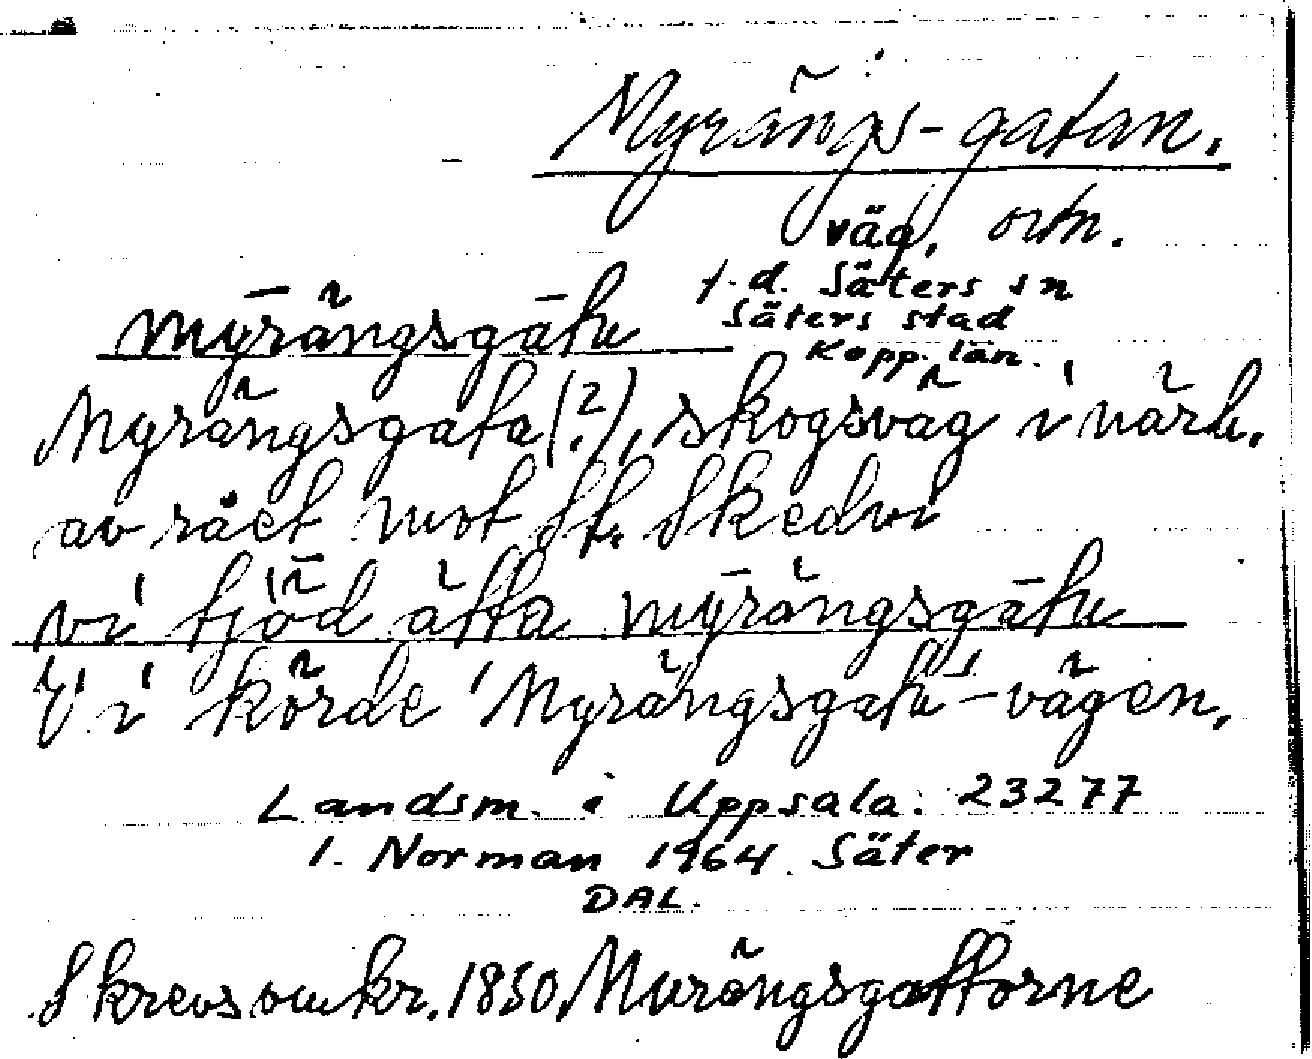 Myrängs-gatan.
väg, ortn.
f.d. Säters sn
Säters stad
Kopp. län.
mȳrängsgātu
Myrängsgata (?), skogsväg i närh.
av rået mot St. Skedvi
vi tjöd ätta mȳrängsgātu
Vi körde 'Myrängsgatu'-vägen.
Landsm. i Uppsala: 23277
I. Norman 1964. Säter
DAL.
Skrevs omkr. 1850 Murängsgattorne